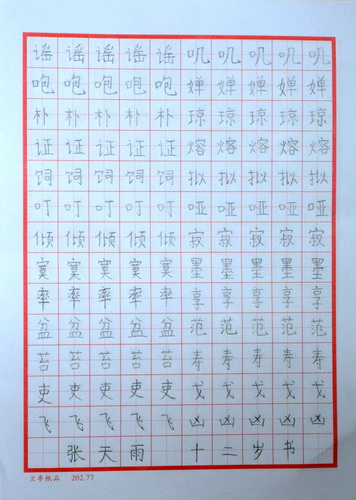 谣谣谣谣谣叽叽叽叽叽
咆咆咆咆咆婵婵婵婵婵
朴朴朴朴朴琼琼琼琼琼
证证证证证熔熔熔熔熔
饲饲饲饲饲拟拟拟拟拟
叮叮叮叮叮哑哑哑哑哑
倾倾倾倾倾寂寂寂寂寂
寞寞寞寞寞墨墨墨墨墨
率率率率率享享享享享
盆盆盆盆盆范范范范范
苔苔苔苔苔寿寿寿寿寿
吏吏吏吏吏戈戈戈戈戈
飞飞飞飞飞凶凶凶凶凶
张天雨 十二岁书
兰亭纸品 202.77